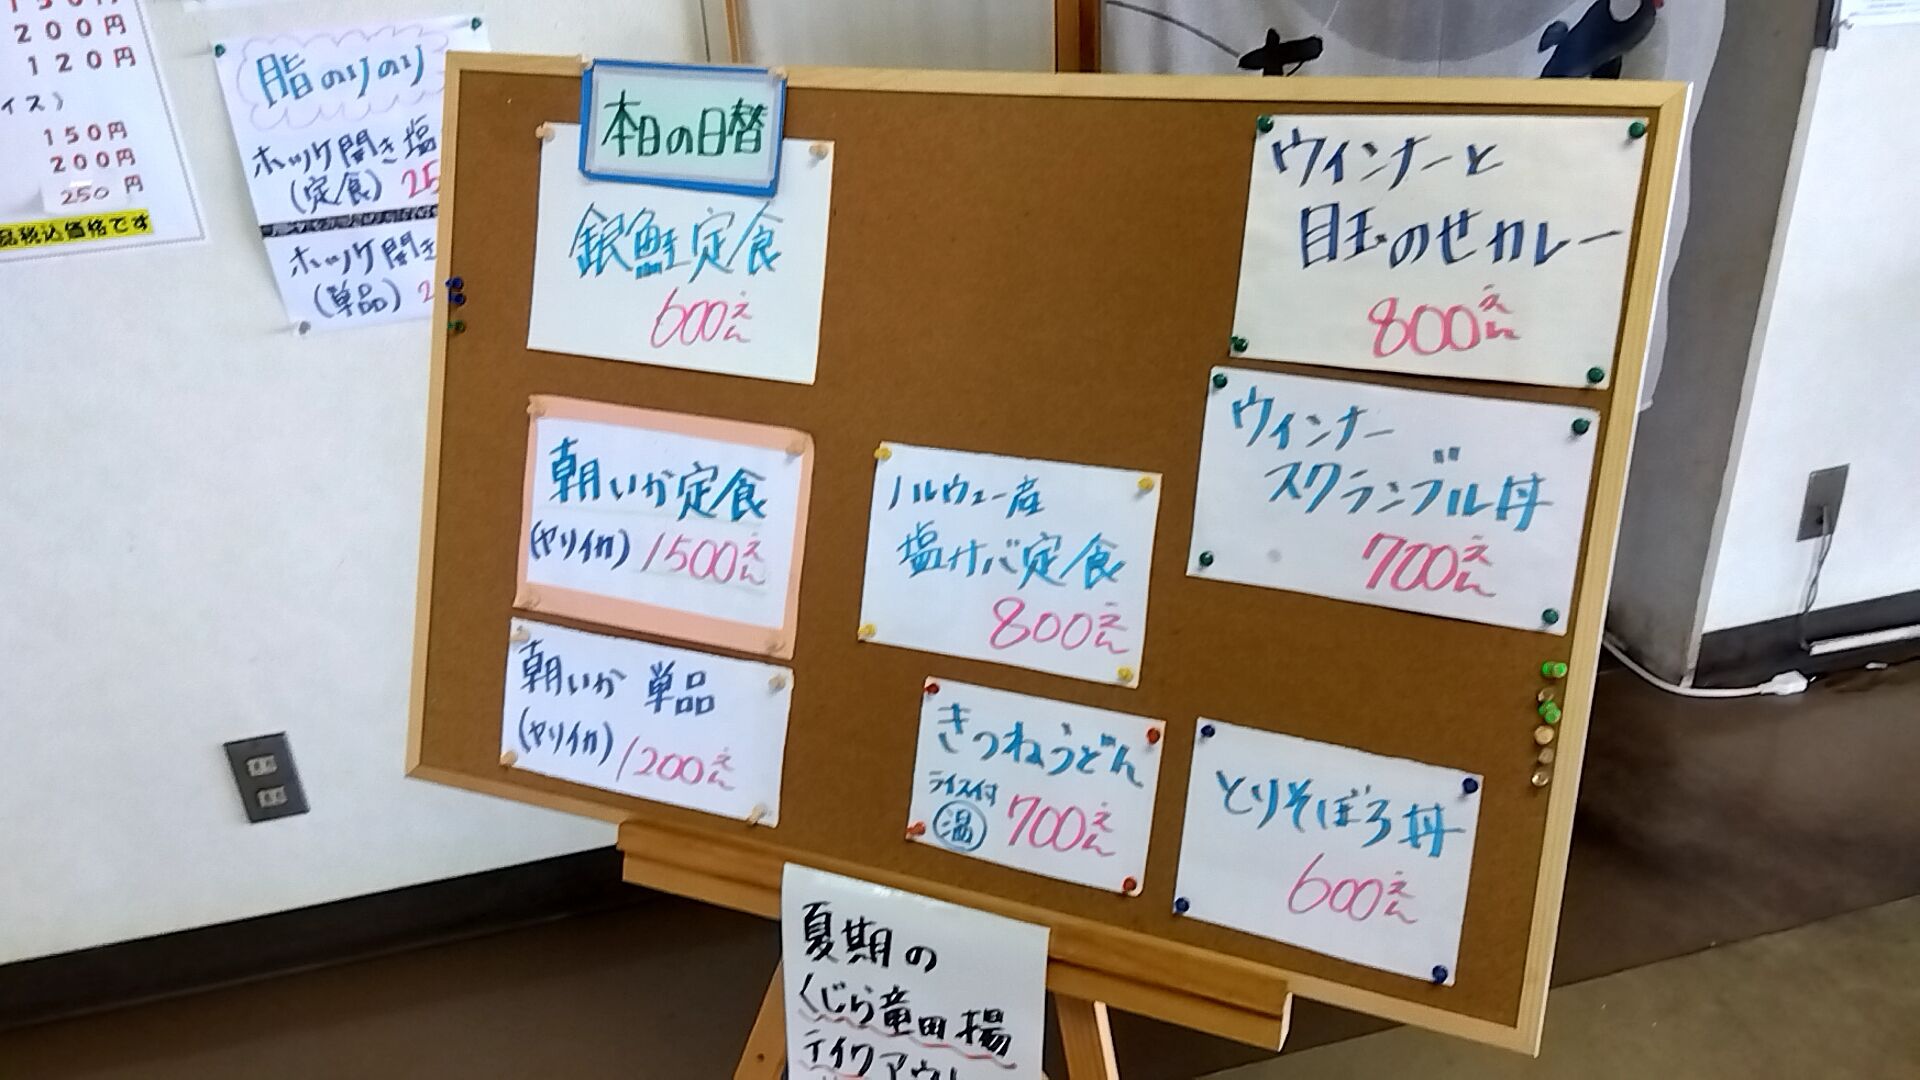 200円
120円
イス）
150円
200円
250円
品税込価格です
脂のりのり
ホッケ開き塩
(定食) 25
ホッケ開き
(単品) 2
本日の日替
銀鮭定食
600えん
朝いか定食
(ヤリイカ) 1500えん
朝いか 単品
(ヤリイカ) 1200えん
ノルウェー産
塩サバ定食
800えん
きつねうどん
ライス付
温 700えん
ウィンナーと
目玉のせカレー
800えん
ウィンナー
スクランブル丼
700えん
とりそぼろ丼
600えん
夏期の
くじら竜田揚
テイクアウト